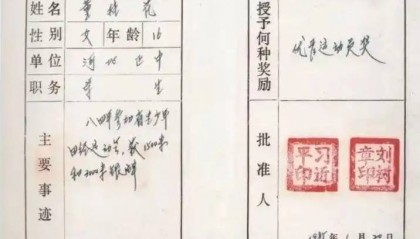 姓名
性别 女 年龄 16
单位 河北正中
职务 学生
主要事迹
八四年参加省青少年
田径运动会,获1500米
和3000米银牌
授予何种奖励
优秀运动员奖
批准人
习近平印
刘树章印
1985年1月29日